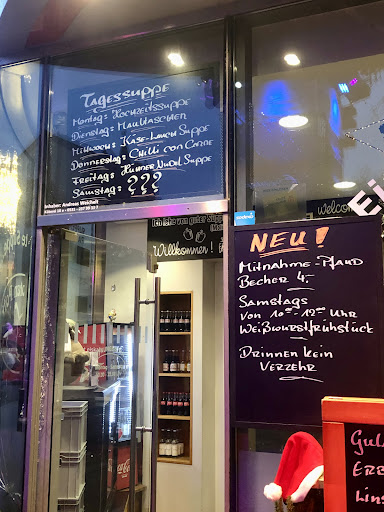 Tagessuppe
Montag: Hochzeitssuppe
Dienstag: Maultaschen
Mittwoch: Käse-Lauch Suppe
Donnerstag: Chilli con Carne
Freitag: Hühner Nudel Suppe
Samstag: ???
Inhaber: Andreas Weichelt
Welcome
Ei
Willkommen!
NEU!
Mitnahme-Pfand
Becher 4,-
Samstags
von 10⁰⁰-12⁰⁰ Uhr
Weißwurstfrühstück
Drinnen kein
Verzehr
Coca-Cola
Gul
Erb
Lins